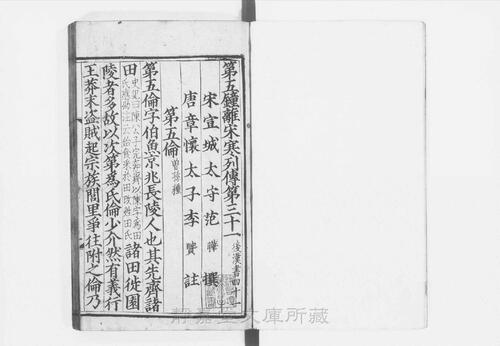 第五鍾離宋寒列傳第三十一 後漢書四十一
宋宣城太守范曄撰
唐章懷太子李賢註
第五倫 曾孫種
第五倫字伯魚京兆長陵人也其先齊諸
田 諸田徙園
陵者多故以次第爲氏倫少介然有義行
王莽末盗賊起宗族閭里爭往附之倫乃
靜嘉堂文庫所藏